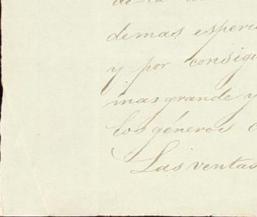 demas, esperi
y por consig
mas grande y
los géneros
Las ventas